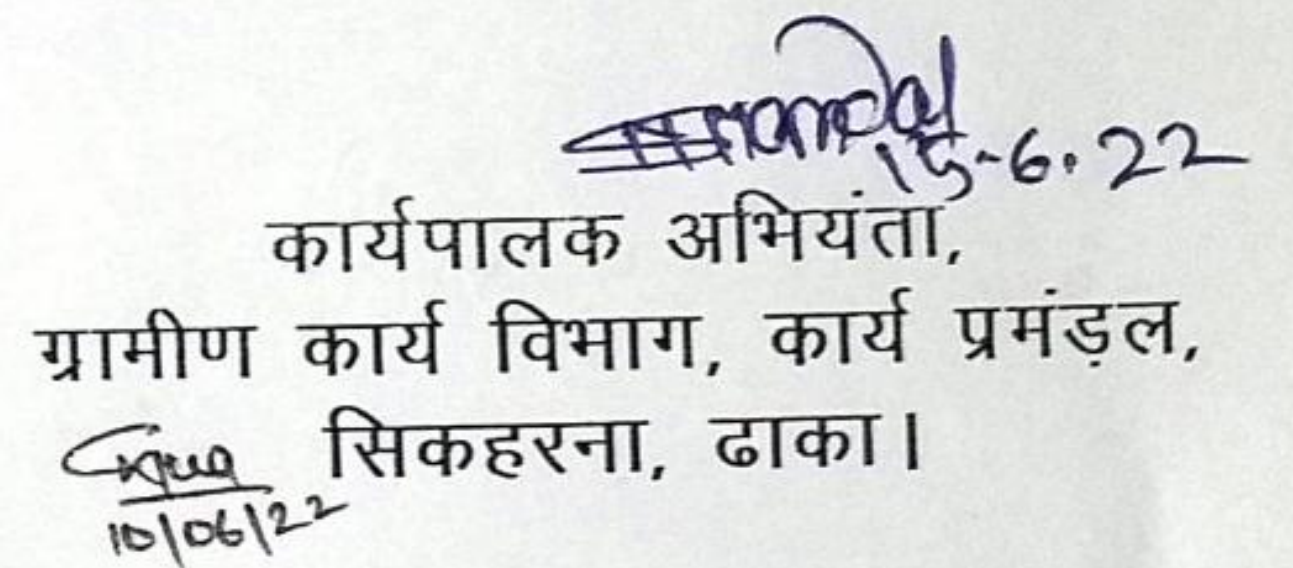 15-6.22
कार्यपालक अभियंता,
ग्रामीण कार्य विभाग, कार्य प्रमंड़ल,
सिकहरना, ढाका।
10/06/22